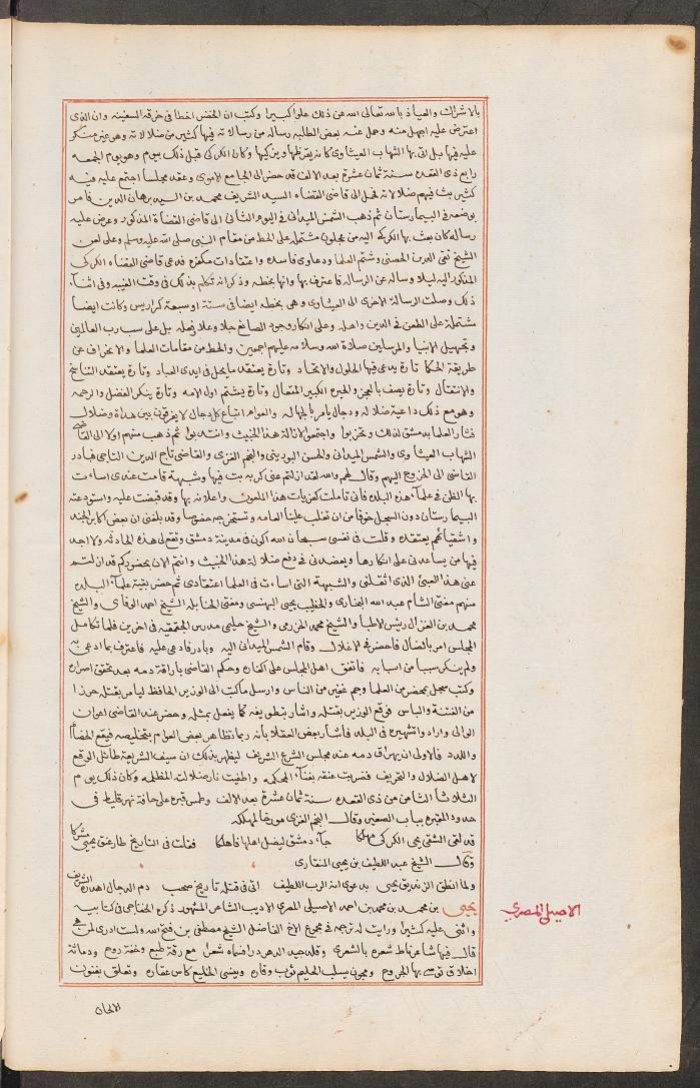 بالاشراك والعياذ بالله تعالى الله عن ذلك علوا كبيرا وكتب ان الخضر اخطا فى خرقه السفينه وان الذى
اعترض عليه اجهل منه وحمل عنه بعض الطلبه رساله من رسالاته فيها كثير من ضلالاته وهو غير منكر
عليه فيها بل اتى بها الشهاب العيثاوى كانه يقرظها ويزكيها وكان الكركى قبل ذلك بيوم وهو يوم الجمعه
رابع ذى القعده سنة ثمان عشرة بعد الالف قد حضر الى الجامع الاموى وعقد مجلسا اجتمع عليه فيه
كثير بث فيهم ضلالاته فحمل الى قاضى القضاه السيد الشريف محمد بن السيد برهان الدين فامر
بوضعه فى البيمارستان ثم ذهب الشمس الميدانى فى اليوم الثانى الى قاضى القضاة المذكور وعرض عليه
رساله كان بعث بها الكركى اليه من عجلون مشتمله على الحط من مقام النبى صلى الله عليه وسلم وعلى لعن
الشيخ تقى الدين الحصنى وشتم العلما ودعاوى فاسده واعتقادات مكفره فدعى قاضى القضاه الكركى
المذكور اليه ليلا وساله عن الرساله فاعترف بها وانها بخطه وذكر انه تكلم بذلك فى وقت الغيبه وفى اثنآء
ذلك وصلت الرسالة الاخرى الى العيثاوى وهى بخطه ايضا فى ستة او سبعة كراريس وكانت ايضا
مشتملة على الطعن فى الدين واهله وعلى انكار وجود الصانع جلا وعلا وفعله بل على سب رب العالمين
وتجهيل الانبيا والمرسلين صلاة الله وسلامه عليهم اجمعين والحط من مقامات العلما والانحراف عن
طريقة الحكما تارة يدعى فيها الحلول والاتحاد وتارة يعتقد مايحل فى ايدى العباد وتارة يعتقد التناسخ
والانتقال وتارة يصف بالعجز والحيره الكبير المتعال وتارة يشتم اول الامه وتارة ينكر الفضل والرحمه
وهو مع ذلك داعية ضلاله ودجال يامر بابلها له والعوام اتباع كل دجال لايفرقون بين هداة وضلال
فثار العلما بدمشق لذلك وتحزبوا واجتمعوا لازالة هذا الخبيث وانتدبوا ثم ذهب منهم اولا الى القاضى
الشهاب العيثاوى والشمس الميدانى والحسن البورينى والنجم الغزى والقاضى تاج الدين التاجى فبادر
القاضى الى الخروج اليهم وقال لهم والله لقد ازلتم عنى كربه بت فيها وشبهة قامت عندى اساءت
بها الظن فى علمآء هذه البلده فانى تاملت كفريات هذا الملعون واعلانه بها وقد قبضت عليه واستودعته
البيمارستان دون السجن خوفا من ان تغلب علينا العامه وتستخرجه خصوصا وقد بلغنى ان بعض اكابر الجند
واشقيائهم يعتقده وقلت فى نفسى سبحان الله اكون فى مدينة دمشق وتقع لى هذه الحادثه ولا اجد
فيها من يساعدنى على انكارها ويعضدنى فى دفع ضلالة هذا الخبيث وانتم الان بحضوركم قد ازلتم
عنى هذا العبئ الذى اثقلنى والشبهة التى اساءت فى العلما اعتقادى ثم حضر بقية علمآء البلده
منهم مفتى الشام عبد الله البخارى والخطيب يحيى البهنسى ومفتى الحنابله الشيخ احمد الوفاى والشيخ
محمد بن الغزال رئيس الاطبا والشيخ محمد الحزرمى والشيخ حليمى مدرس الجقمقيه فى اخرين فلما تكامل
المجلس امر بالضال فاحضر فى الاغلال وقام الشمس الميدانى اليه وبادر فادعى عليه فاعترف بما ادعى به
ولم ينكر سببا من اسبابه فاتفق اهل المجلس على اكفاره وحكم القاضى باراقة دمه بعد تحقق اصراره
وكتب سجل بمحضر من العلما وجم غفير من الناس وارسل ماكتب الى الوزير الحافظ ليامر بقتله حرزا
من الفتنة والباس فوقع الوزير بقتله واشار بتطويفه كما يفعل بمثله وحضر عند القاضى اعوان
الوالى وارادوا تشهيره فى البلد فاشار بعض العقلا بأنه ربما تظاهر بعض العوام بتخليصه فيقع الخصام
واللدد فالاولى ان يهراق دمه عند مجلس الشرع الشريف ليظهر بذلك ان سيف الشريعة طائل الوقع
لاهل الضلال والتحريف فضربت عنقه بفنآء المحكمه واطفيت نار ضلالته المظلمه وكان ذلك يوم
الثلاثآ الثامن من ذى القعده سنة ثمان عشرة بعد الالف وطمس قبره على حافة نهر قليط فى
حدود المقبره بباب الصغير وقال النجم الغزى مورخا لمهلكه
قد لقى الشقى يحيى الكركى مهلكا جآء دمشق ليضل اهلها فاهلكا فقلت فى التاريخ طار عنق يحيى مشركا
وقال الشيخ عبد اللطيف بن يحيى المنقارى
ولما انطلق الزنديق يحيى بدعوى انه الرب اللطيف اتى فى قتله تاريخ صحب دم الدجال اهدره الشريف
يحيى بن محمد بن محمد بن احمد الاصيلى المصرى الاديب الشاعر المشهور ذكره الخفاجى فى كتابيه
واثنى عليه كثيرا ورايت له ترجمه فى مجموع الاخ الفاضل الشيخ مصطفى بن فتح الله ولست ادرى لمن هى
قال فيها شاعر ناط شعره بالشعرى وقلد جيد الدهر درا ضمنه شعرا مع رقة طبع وخفة روح ودماثة
اخلاق توسى بها الجروح ومجون يسلب الحليم ثوب وقاره وينسى الخليع كاس عقاره وتعلق بفنون
الاصيلى المصرى
الالحان